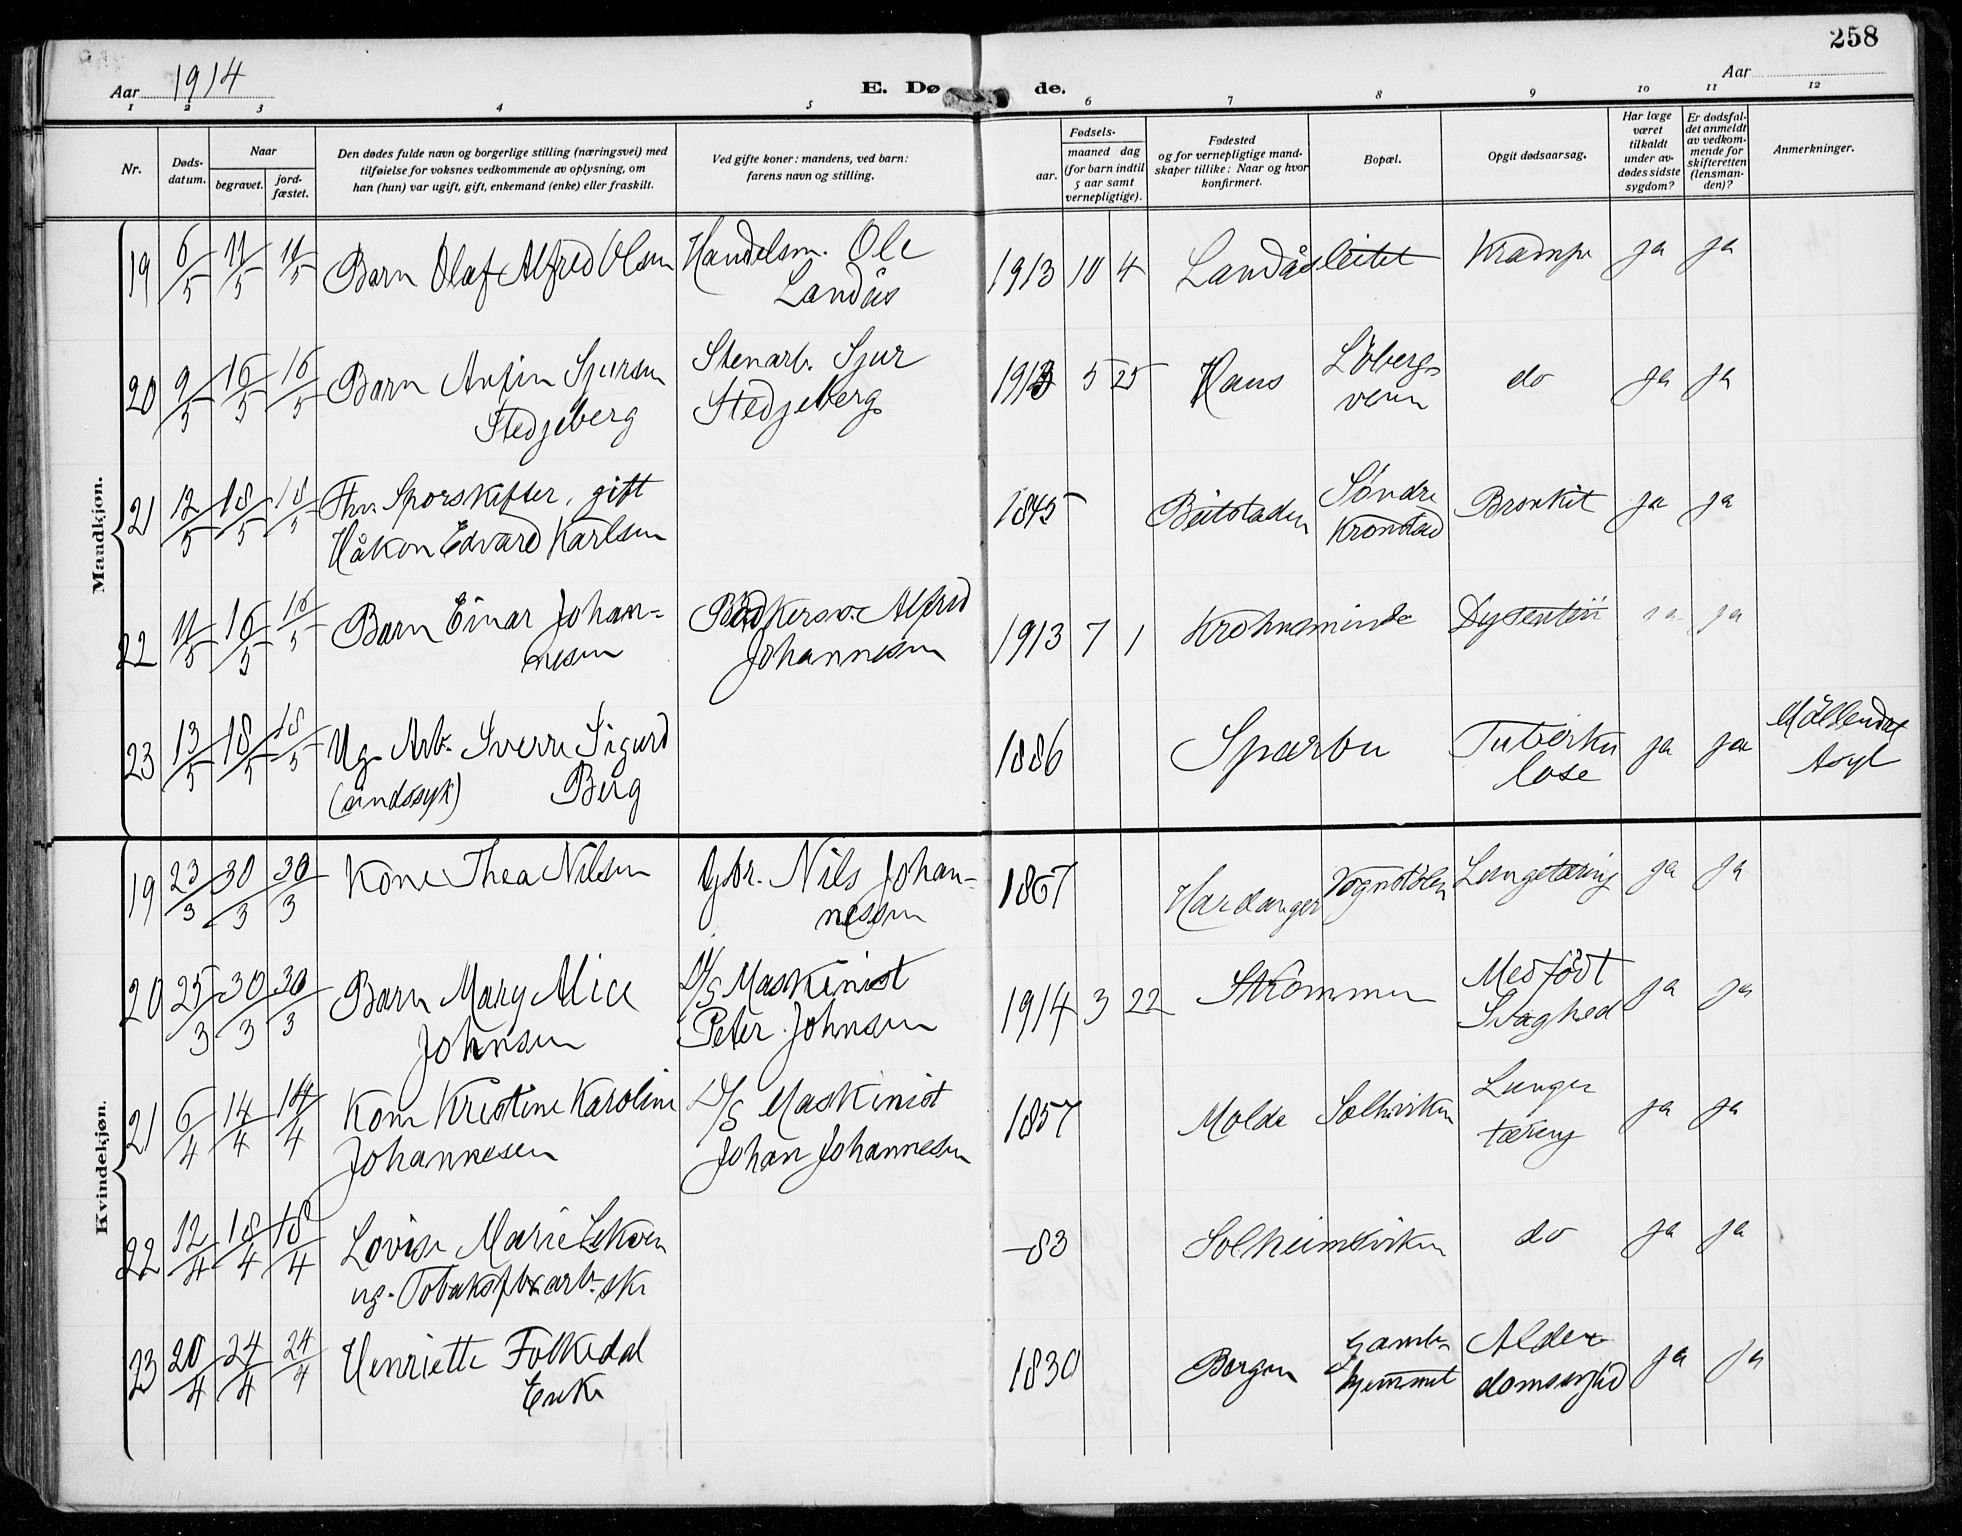 258
Aar 1914
E. Dø de.
Aar
1 2 3 4 5 6 7 8 9 10 11 12
Nr.
Døds-
datum.
Naar
begravet.
jord-
fæstet.
Den dødes fulde navn og borgerlige stilling (næringsvei) med
tilføielse for voksnes vedkommende av oplysning, om
han (hun) var ugift, gift, enkemand (enke) eller fraskilt.
Ved gifte koner: mandens, ved barn:
farens navn og stilling.
Fødsels-
aar.
maaned dag
(for barn indtil
5 aar samt
vernepligtige).
Fødested
og for vernepligtige mand-
skaper tillike: Naar og hvor
konfirmert.
Bopæl.
Opgit dødsaarsag.
Har læge
været
tilkaldt
under av-
dødes sidste
sygdom?
Er dødsfal-
det anmeldt
av vedkom-
mende for
skifteretten
(lensman-
den)?
Anmerkninger.
Maadkjøn.
19 6/5 11/5 11/5 Barn Olaf Alfred Olsen Handelsm. Ole
Landås
1913 10 4 Landåsleitet Krampe ja ja
20 9/5 16/5 16/5 Barn Anfin Sjursen
Stedjeberg
Stenarb. Sjur
Stedjeberg
1913 5 25 Haus Löbergs
veien
do ja ja
21 12/5 18/5 18/5 Fhv. Sporskifter, gift
Håkon Edvard Karlsen
1845 Beitstaden Söndre
Kronstad
Bronkit ja ja
22 11/5 16/5 16/5 Barn Einar Johan=
nesen
Bödkersv. Alfred
Johannesen
1913 7 1 Krohnsminde Dysenteri ja ja
23 13/5 18/5 18/5 Ug. Arb. Sverre Sigurd
(sindssyk) Berg
1886 Sparbu Tuberku
lose
ja ja Möllendal
Asyl
Kvindekjøn.
19 23/3 30/3 30/3 Kone Thea Nilsen Gbr. Nils Johan-
nessen
1867 Hardanger Vognstölen Lungetæring ja ja
20 25/3 30/3 30/3 Barn Mary Alice
Johnsen
D/S Maskinist
Peter Johnsen
1914 3 22 Strömmen Medfödt
Svaghed
ja ja
21 6/4 14/4 14/4 Kone Kristine Karoline
Johannesen
D/S Maskinist
Johan Johannesen
1857 Molde Solhviken Lunge
tæring
ja ja
22 12/4 18/4 18/4 Lovise Marie Lekven
ug. Tobaksfbr arb.ske
-83 Solheimsviken do ja ja
23 20/4 24/4 24/4 Henriette Folkedal
Enke
1830 Bergen Gamle
hjemmet
Alder
domssvækked
ja ja